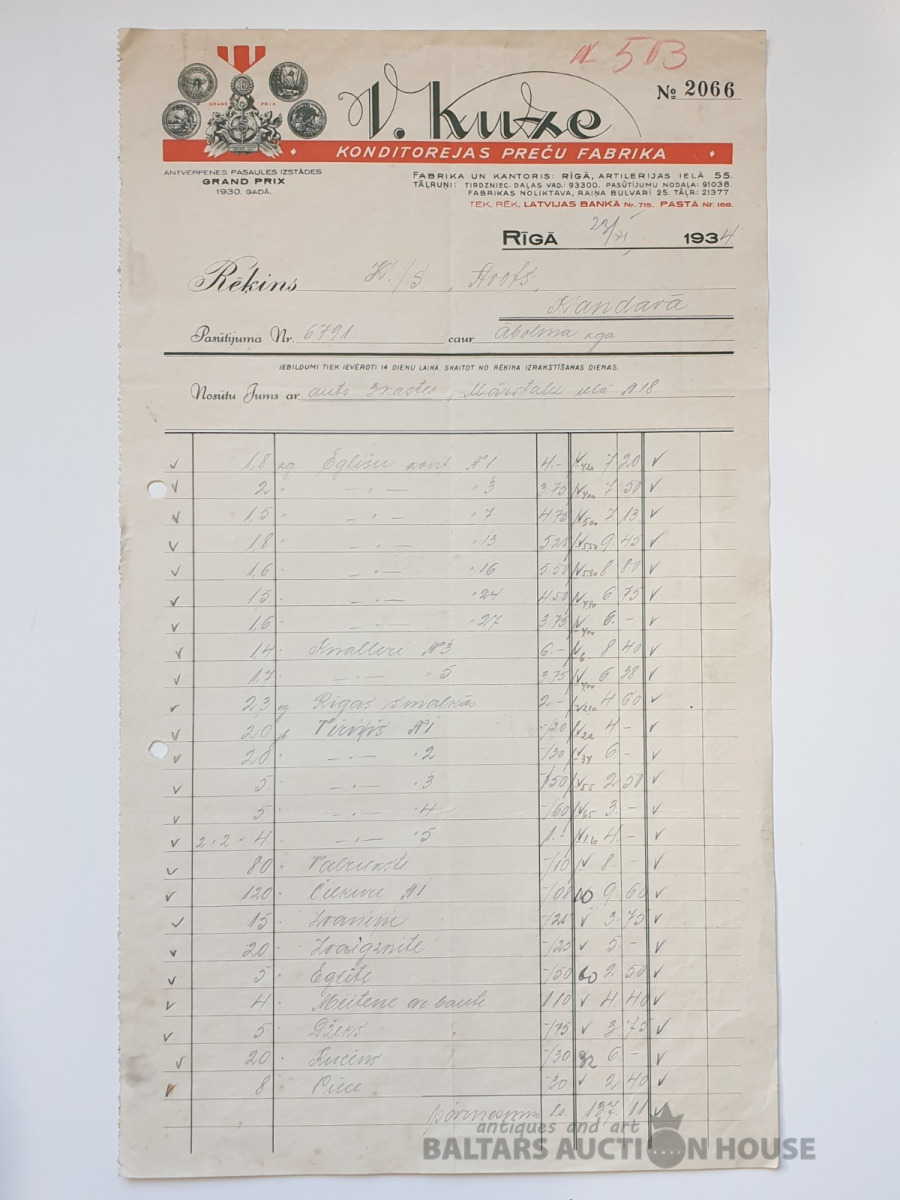 № 513
GRAND PRIX
V. Kuze
№ 2066
KONDITOREJAS PREČU FABRIKA
ANTVERPENES PASAULES IZSTĀDES
GRAND PRIX
1930. GADĀ.
FABRIKA UN KANTORIS: RĪGĀ, ARTILERIJAS IELĀ 55.
TĀLRUŅI: TIRDZNIEC. DAĻAS VAD.: 93300. PASŪTĪJUMU NODAĻA: 91038.
FABRIKAS NOLIKTAVA, RAIŅA BULVARĪ 25. TĀLR.: 21377
TEK. RĒĶ. LATVIJAS BANKĀ Nr. 715. PASTĀ Nr. 188.
RĪGĀ 1934
Rēķins K./S.
Kandavā
Pasūtījuma Nr. 6791 caur Āboliņa kga
IEBILDUMI TIEK IEVĒROTI 14 DIENU LAIKĀ, SKAITOT NO RĒĶINA IZRAKSTĪŠANAS DIENAS.
Nosūtu Jums ar auto Mārstaļu ielā №18
1,8 kg Eglīšu konf. №1 4.- 7 20
2 " -"- " 3 3.75 7 50
1,5 " -"- " 7 4.75 7 13
1,8 " -"- " 13 5.20 9 45
1,6 " -"- " 16 5.50 8 80
1,5 " -"- " 24 4.50 6 75
1,6 " -"- " 27 3.75 6 -
1,4 " Knalleri №3 6.- 8 40
1,7 " -"- " 5 3.75 6 38
2,3 kg Rīgas smalkās 2.- 4 60
20 №1 -/20 4 -
20 " -"- " 2 -/30 6 -
5 " -"- " 3 -/50 2 50
5 " -"- " 4 -/60 3 -
2+2=4 " -"- " 5 1.- 4 -
80 " Valrieksti -/10 8 -
120 " Čiekuri №1 -/08 9 60
15 " -/25 3 75
20 " Zvaigznīte -/25 5 -
5 " Eglīte -/50 2 50
4 " Meitene ar banti 1.10 4 40
5 " -/75 3 75
20 " Kucēns -/30 6 -
8 " Pūce -30 2 40
pārnesums Ls. 137 11
antiques and art
BALTARS AUCTION HOUSE